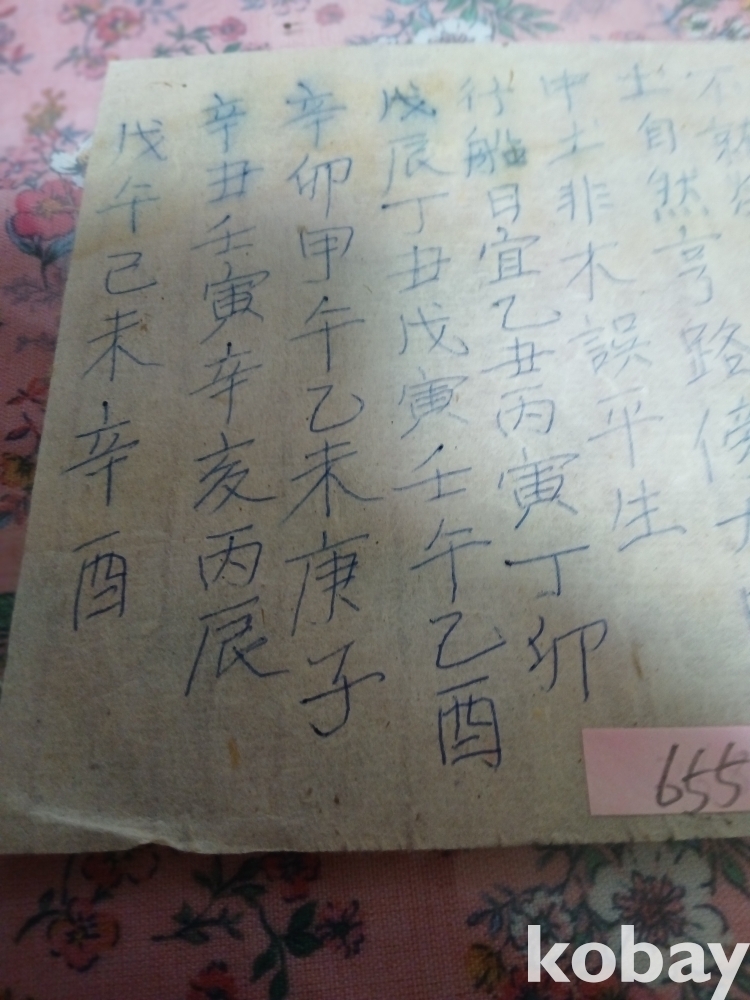 土自然亨
中土非木誤平生
行船日宜乙丑丙寅丁卯
戊辰丁丑戊寅壬午乙酉
辛卯甲午乙未庚子
辛丑壬寅辛亥丙辰
戊午己未辛酉
655
kobay